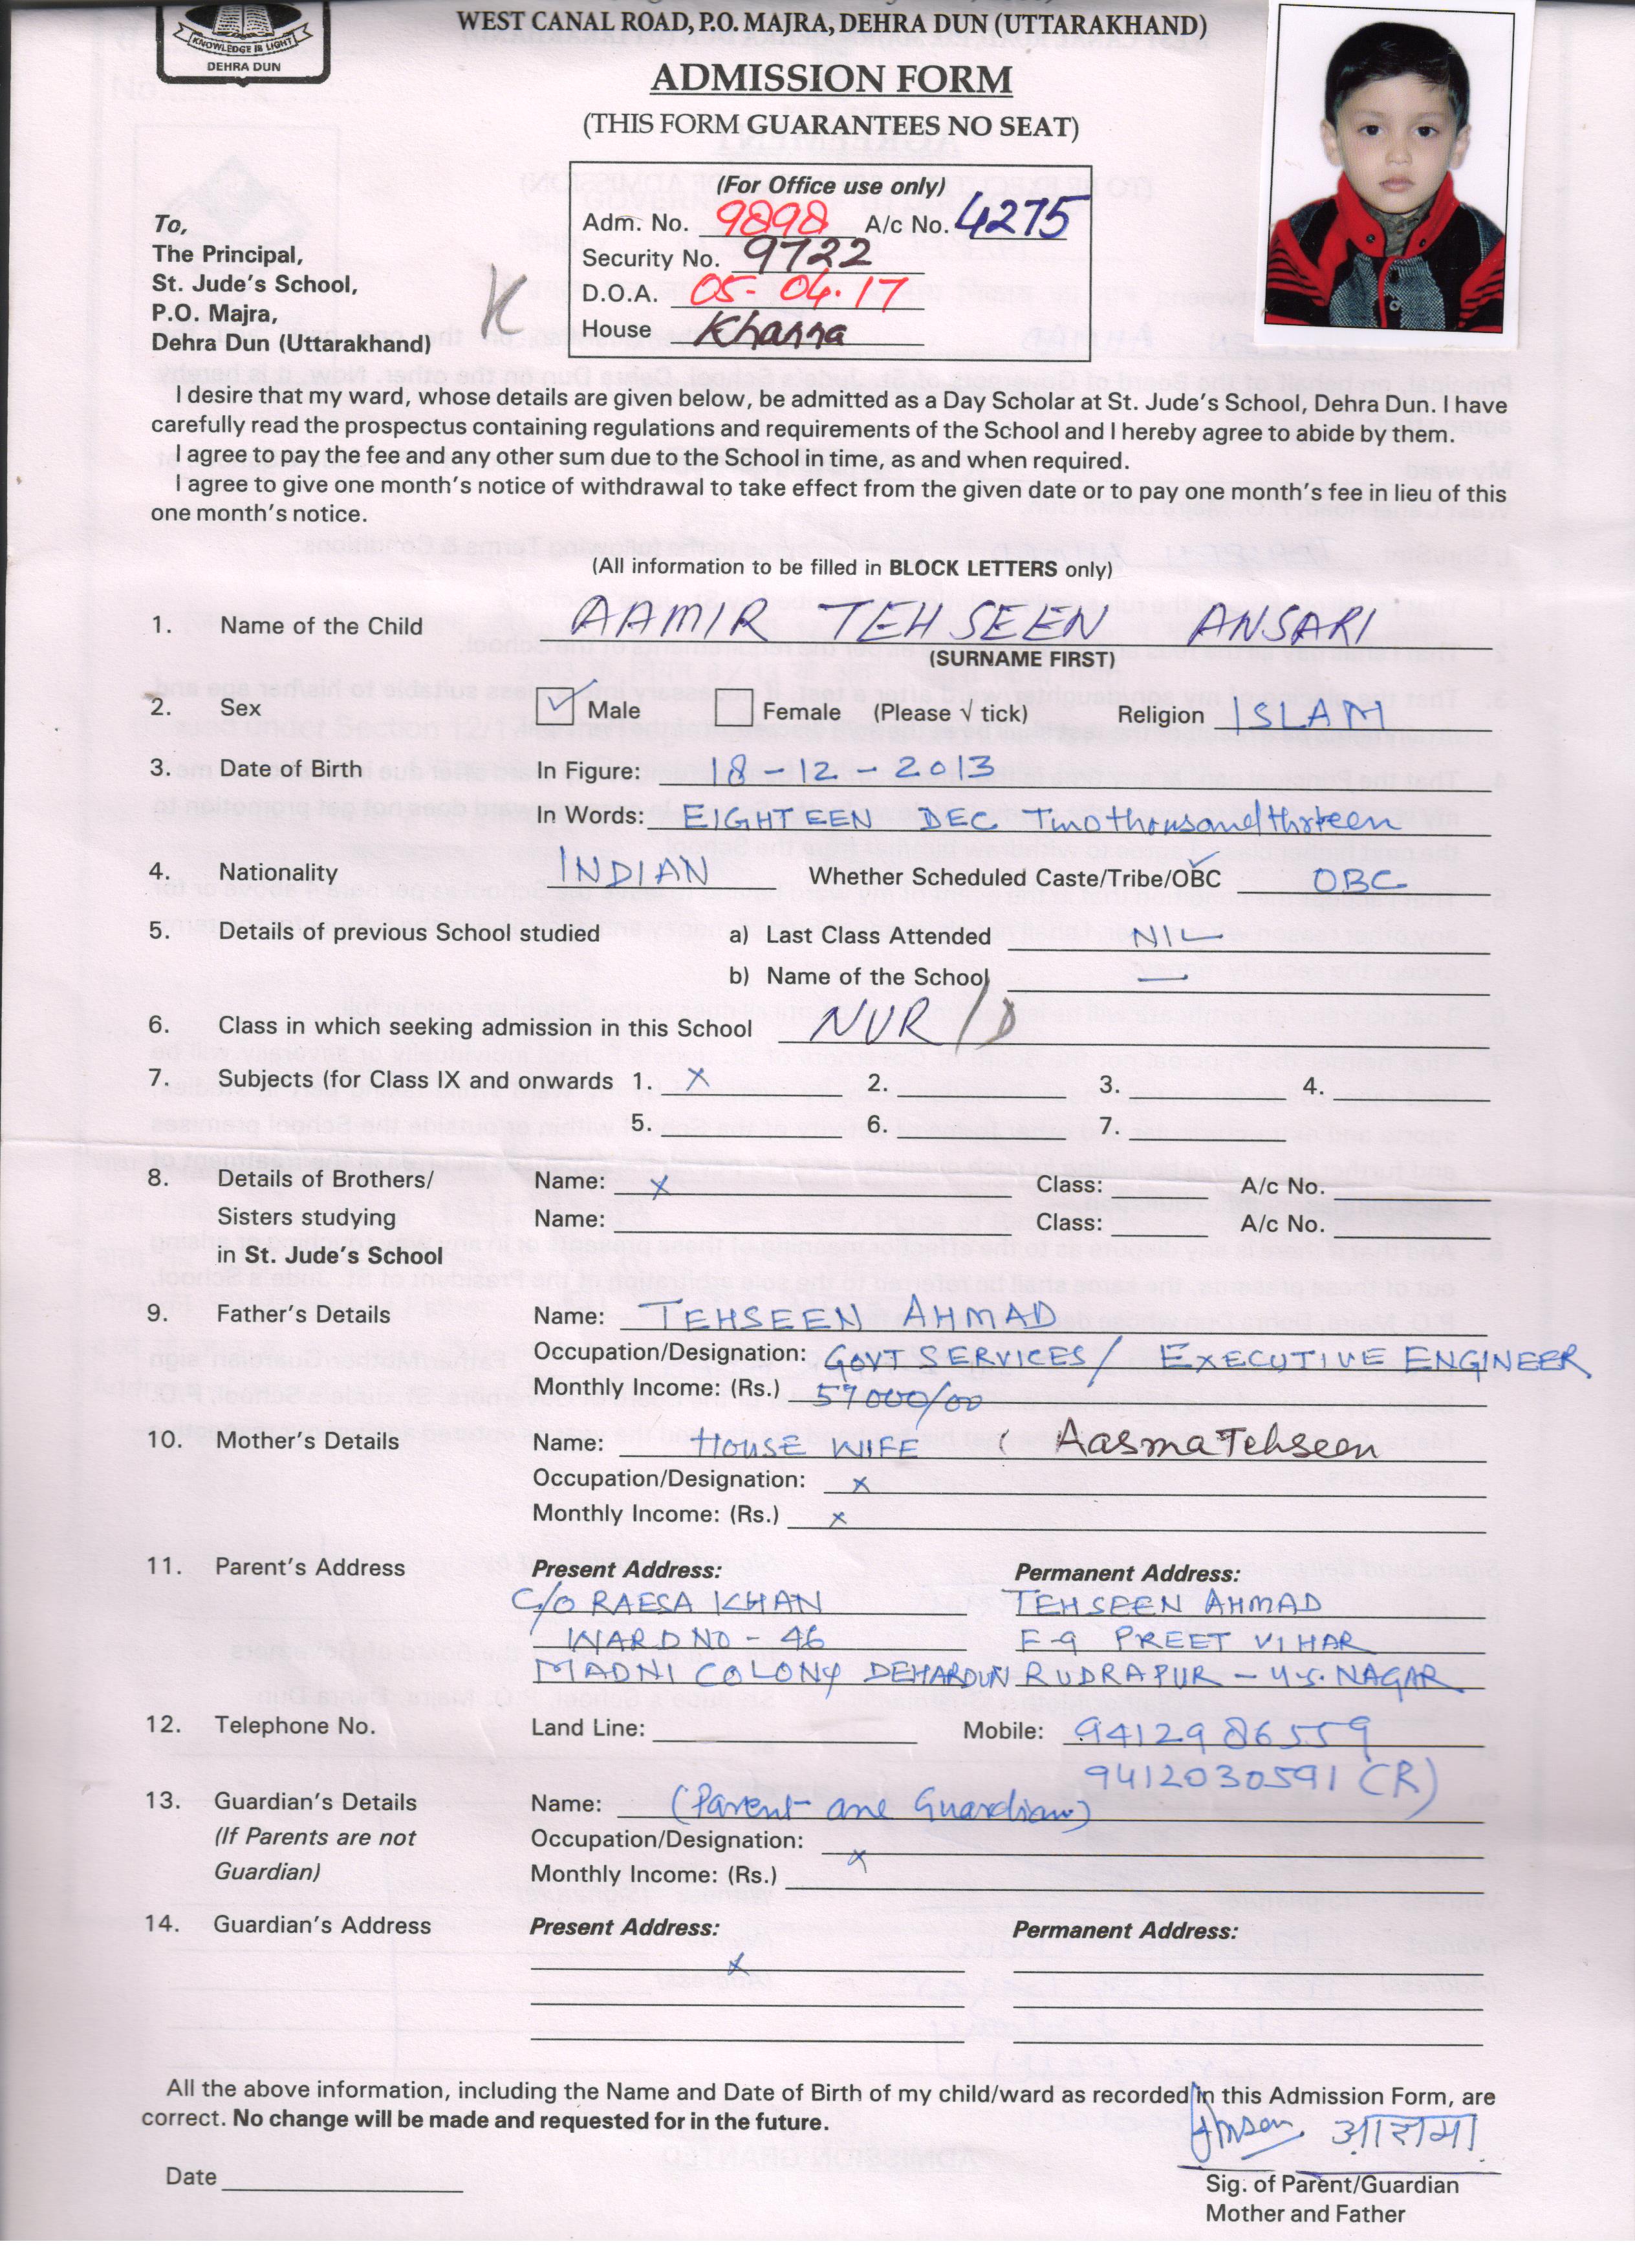 KNOWLEDGE IS LIGHT
DEHRA DUN
WEST CANAL ROAD, P.O. MAJRA, DEHRA DUN (UTTARAKHAND)
ADMISSION FORM
(THIS FORM GUARANTEES NO SEAT)
(For Office use only)
Adm. No. 9898 A/c No. 4275
Security No. 9722
D.O.A. 05-04.17
House Khanna
To,
The Principal,
St. Jude's School,
P.O. Majra,
Dehra Dun (Uttarakhand)
K
I desire that my ward, whose details are given below, be admitted as a Day Scholar at St. Jude's School, Dehra Dun. I have
carefully read the prospectus containing regulations and requirements of the School and I hereby agree to abide by them.
I agree to pay the fee and any other sum due to the School in time, as and when required.
I agree to give one month's notice of withdrawal to take effect from the given date or to pay one month's fee in lieu of this
one month's notice.
(All information to be filled in BLOCK LETTERS only)
1. Name of the Child AAMIR TEHSEEN ANSARI
(SURNAME FIRST)
2. Sex ✓ Male Female (Please √ tick) Religion ISLAM
3. Date of Birth In Figure: 18-12-2013
In Words: EIGHTEEN DEC Two thousand thirteen
4. Nationality INDIAN Whether Scheduled Caste/Tribe/OBC ✓ OBC
5. Details of previous School studied a) Last Class Attended NIL
b) Name of the School —
6. Class in which seeking admission in this School NUR/D
7. Subjects (for Class IX and onwards 1. X 2. 3. 4.
5. 6. 7.
8. Details of Brothers/ Name: X Class: A/c No.
Sisters studying Name: Class: A/c No.
in St. Jude's School
9. Father's Details Name: TEHSEEN AHMAD
Occupation/Designation: GOVT SERVICES/ EXECUTIVE ENGINEER
Monthly Income: (Rs.) 57000/00
10. Mother's Details Name: HOUSE WIFE ( Aasma Tehseen
Occupation/Designation: x
Monthly Income: (Rs.) x
11. Parent's Address Present Address: Permanent Address:
C/O RAESA KHAN TEHSEEN AHMAD
WARD NO - 46 F-9 PREET VIHAR
MADNI COLONY DEHARDUN RUDRAPUR - U.S. NAGAR
12. Telephone No. Land Line: Mobile: 9412986559
9412030591 (R)
13. Guardian's Details Name: (Parent are Guardian)
(If Parents are not Occupation/Designation: x
Guardian) Monthly Income: (Rs.)
14. Guardian's Address Present Address: Permanent Address:
x
All the above information, including the Name and Date of Birth of my child/ward as recorded in this Admission Form, are
correct. No change will be made and requested for in the future.
आसमा
Date Sig. of Parent/Guardian
Mother and Father